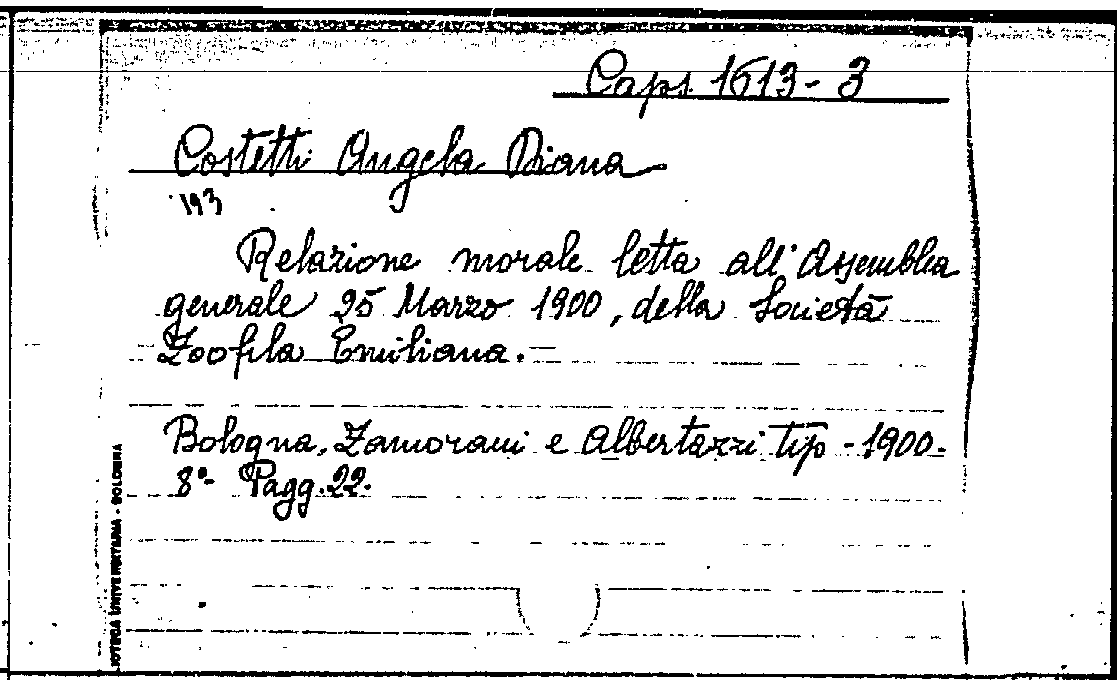 Caps. 1613-3
Costetti Angela Diana
193
Relazione morale letta all'Assemblea
generale 25 Marzo 1900, della Società
Zoofila Emiliana.=
Bologna, Zamorani e Albertazzi tip - 1900.
8º- Pagg. 22.
IOTECA UNIVERSITARIA - BOLOGNA